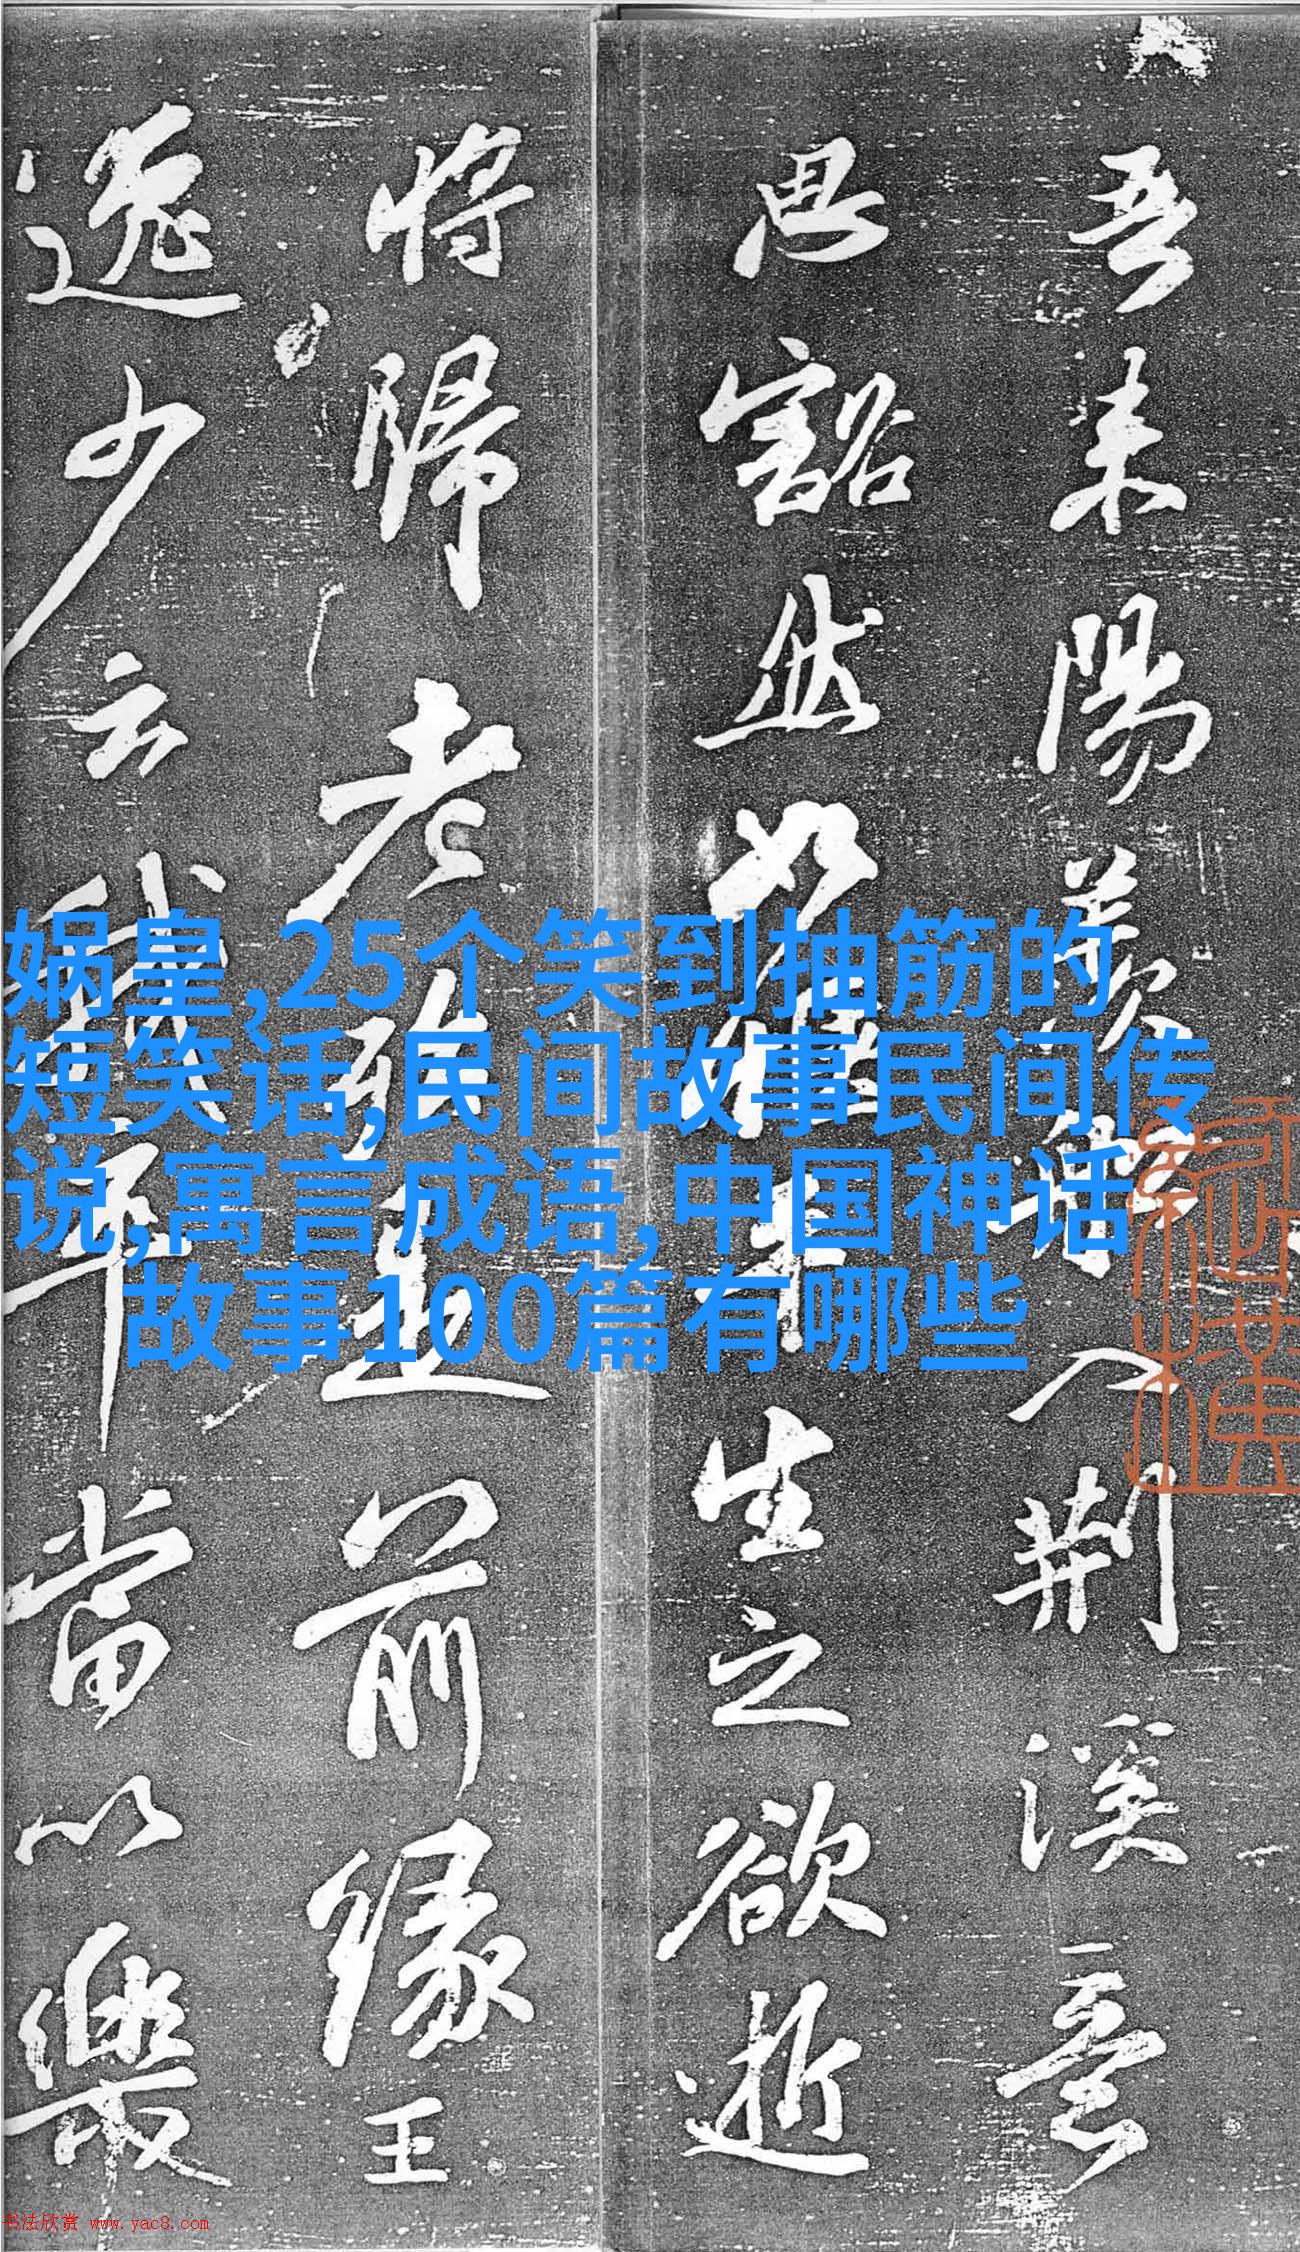 吾来陽羨船入荆溪意
思豁然如惬平生之欲逝
將歸老殆是前緣王
逸少云我卒當以樂
娲皇,25个笑到抽筋的
短笑话,民间故事民间传
说,寓言成语,中国神话
故事100篇有哪些
书法欣赏 www.yac8.com